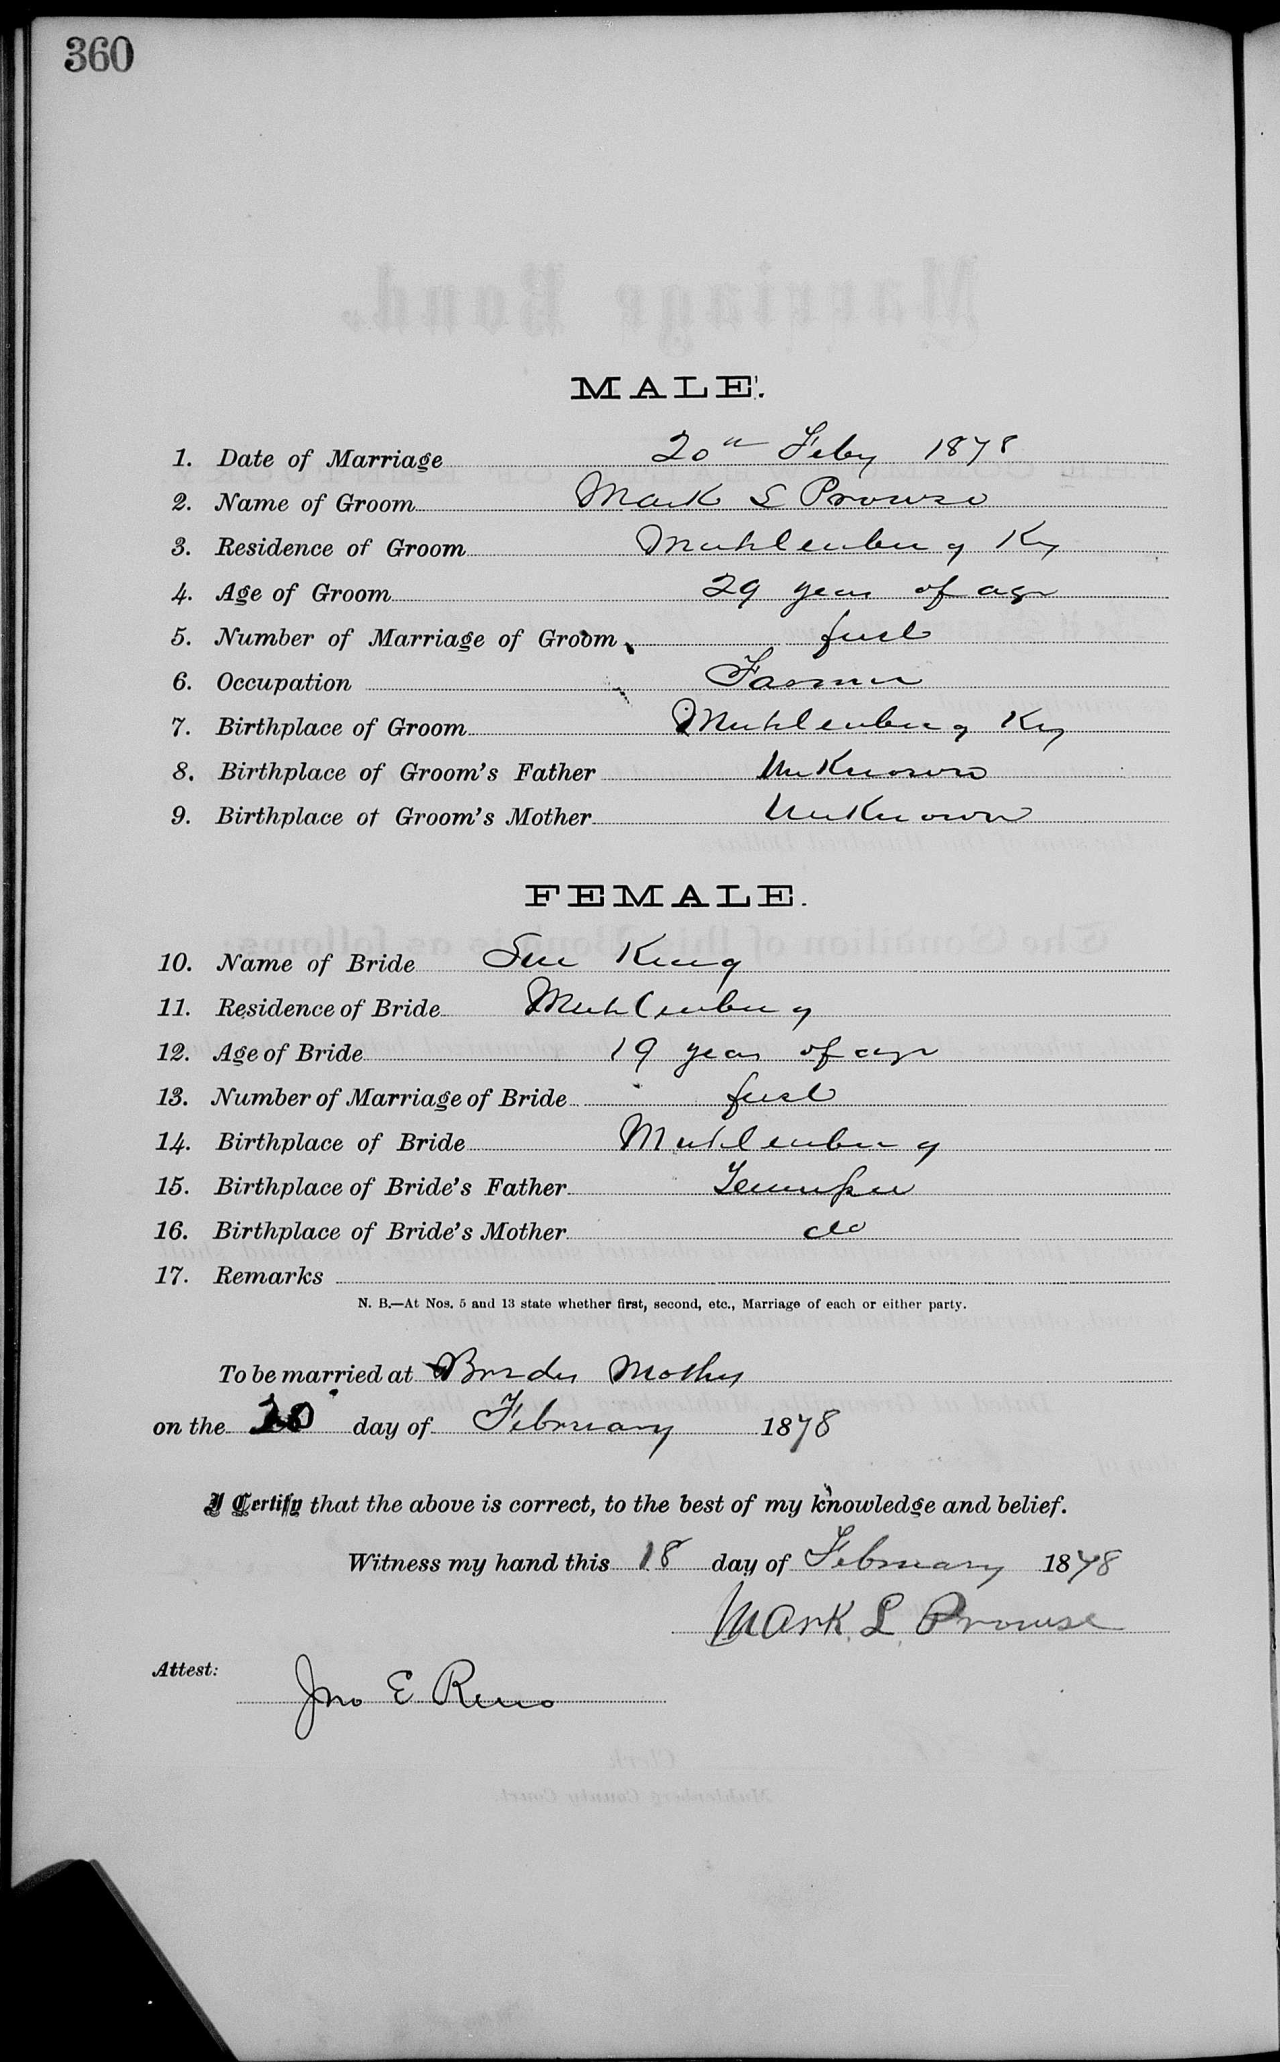 360
MALE.
1. Date of Marriage 20th Feby 1878
2. Name of Groom Mark L Prowse
3. Residence of Groom Muhlenburg Ky
4. Age of Groom 29 years of age
5. Number of Marriage of Groom first
6. Occupation Farmer
7. Birthplace of Groom Muhlenburg Ky
8. Birthplace of Groom's Father UnKnown
9. Birthplace of Groom's Mother UnKnown
FEMALE.
10. Name of Bride Sue King
11. Residence of Bride Muhlenburg
12. Age of Bride 19 years of age
13. Number of Marriage of Bride first
14. Birthplace of Bride Muhlenburg
15. Birthplace of Bride's Father Tennessee
16. Birthplace of Bride's Mother do
17. Remarks
N. B.—At Nos. 5 and 13 state whether first, second, etc., Marriage of each or either party.
To be married at Brides Mothers
on the 20 day of February 1878
I Certify that the above is correct, to the best of my knowledge and belief.
Witness my hand this 18 day of February 1878
Mark. L. Prowse
Attest:
Jno E Reno